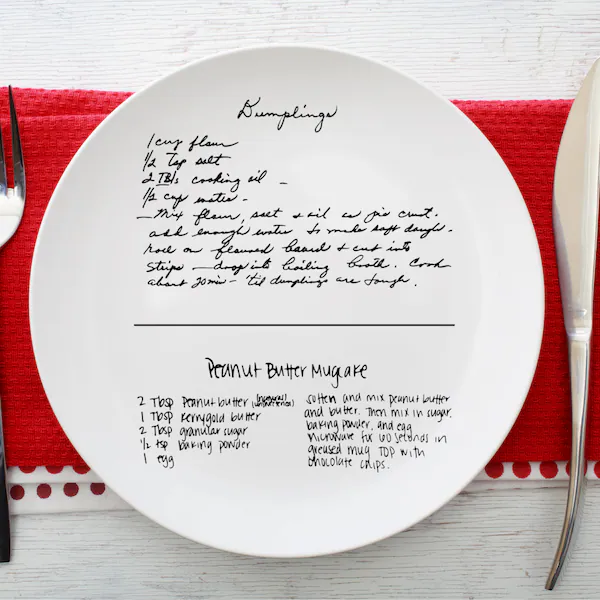 Dumplings
1 cup flour
1/2 Tsp salt
2 TBls cooking oil -
1/2 cup water -
- Mix flour, salt & oil as pie crust.
add enough water to make soft dough.
roll on floured board & cut into
strips - drop into boiling broth. Cook
about 20 min - 'til dumplings are tough.
Peanut Butter Mugcake
2 Tbsp Peanut butter
1 Tbsp Kerrygold butter
2 Tbsp granular sugar
1/2 tsp baking powder
1 egg
soften and mix peanut butter
and butter. Then mix in sugar,
baking powder, and egg
microwave for 60 seconds in
greased mug. TOP with
chocolate chips.